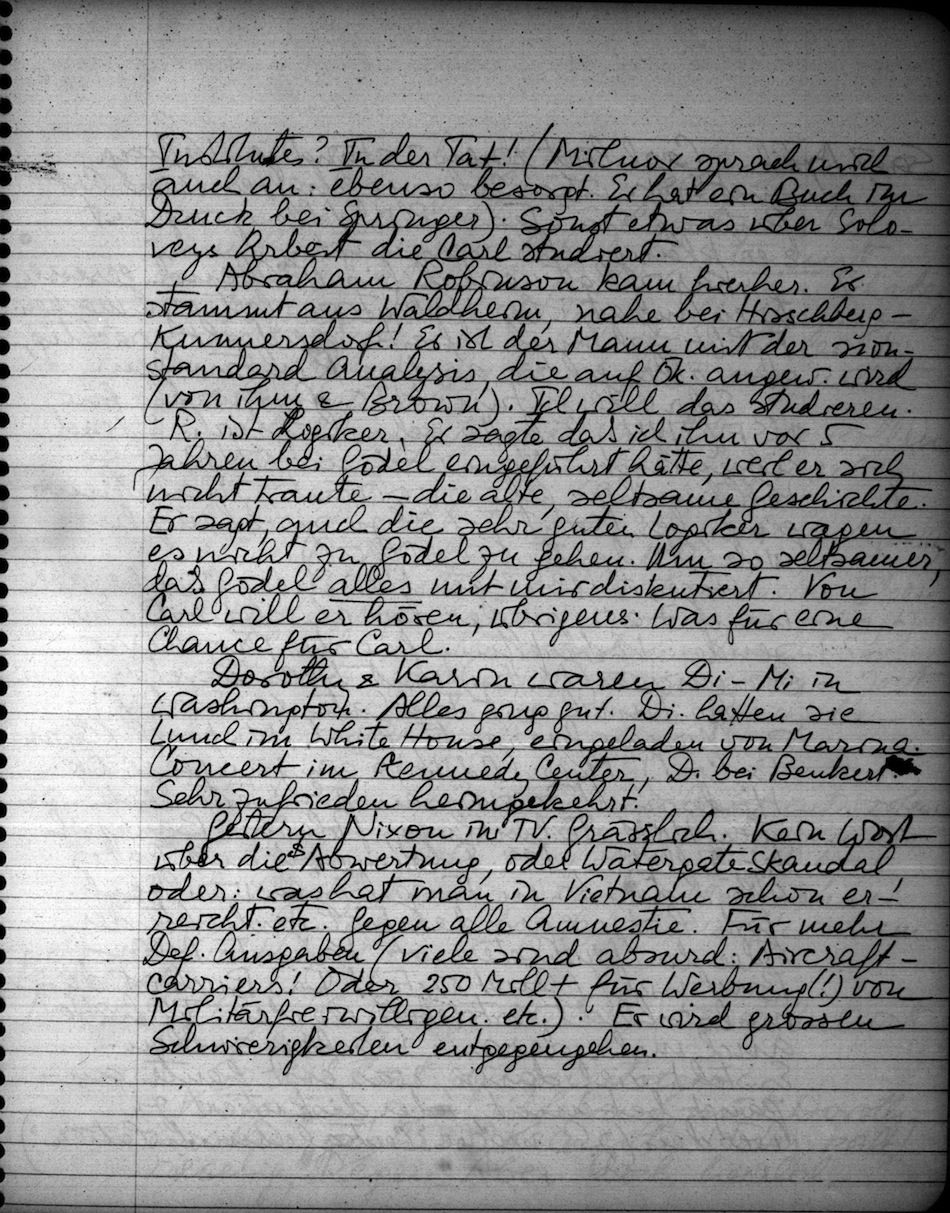 Institutes? In der Tat! (Milnor sprach mich
auch an: ebenso besorgt. Er hat ein Buch im
Druck bei Springer). Sonst etwas über Solo-
veys Arbeit die Carl studiert.
Abraham Robinson kam hierher. Er
stammt aus Waldheim, nahe bei Hirschberg-
Kunnersdorf! Er ist der Mann mit der non-
standard Analysis, die auf Ök. angew. wird
(von ihm & Brown). Ich will das studieren.
R. ist Logiker. Er sagte dass ich ihn vor 5
Jahren bei Gödel eingeführt hätte, weil er sich
nicht traute – die alte, seltsame Geschichte.
Er sagt, auch die sehr guten Logiker wagen
es nicht zu Gödel zu gehen. Um so seltsamer,
dass Gödel alles mit mir diskutiert. Von
Carl will er hören, übrigens. Was für eine
Chance für Carl.
Dorothy & Karin waren Di-Mi in
Washington. Alles ging gut. Di. hatten sie
Lunch im White House, eingeladen von Marina.
Concert im Kennedy Center, D. bei Benkert.
Sehr zufrieden heimgekehrt.
Gestern Nixon im TV. Grässlich. Kein Wort
über die $ Abwertung, oder Watergate Skandal
oder: was hat man in Vietnam schon er-
reicht. etc. Gegen alle Amnestie. Für mehr
Def. Ausgaben (viele sind absurd: Aircraft-
carriers! Oder 250 Mill $ für Werbung(!) von
Militärfreiwilligen. etc.). Er wird grossen
Schwierigkeiten entgegengehen.